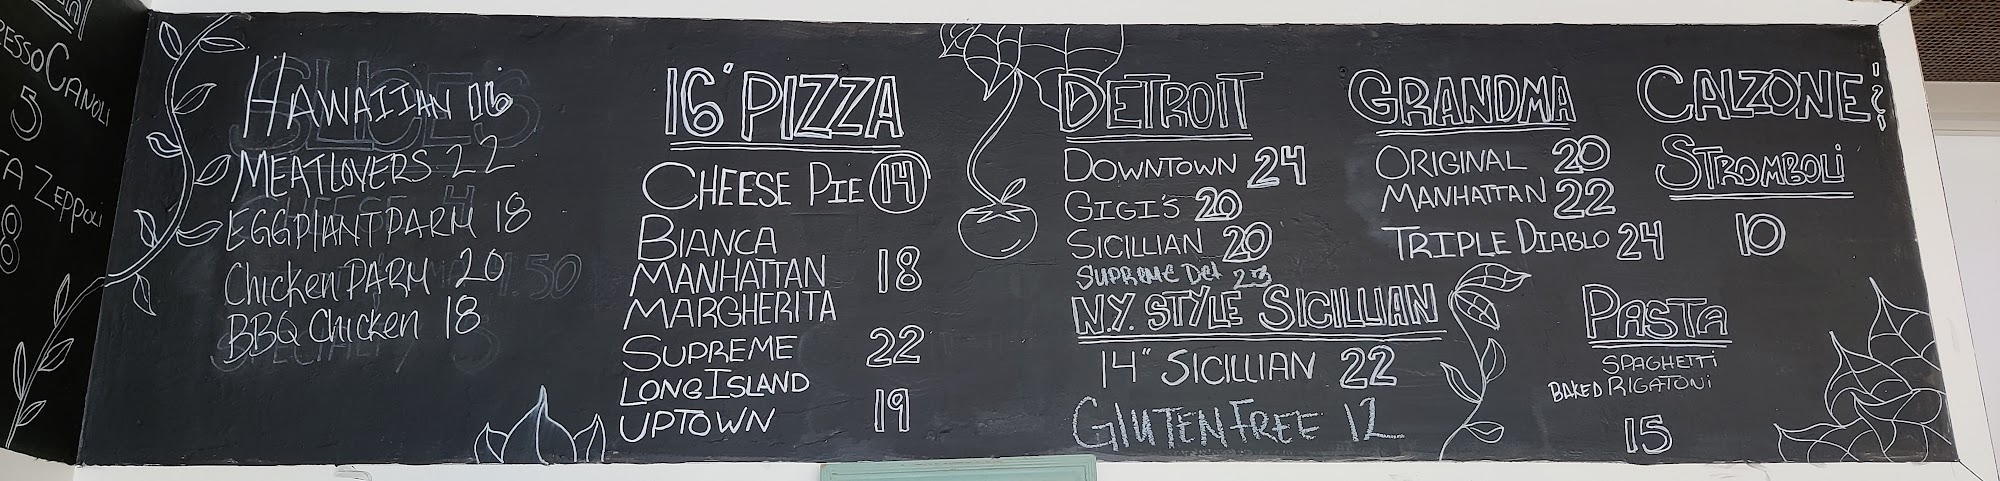 CANOLI
5
ZEPPOLI
8
HAWAIIAN 16
MEATLOVERS 22
EGGPLANT PARM 18
Chicken PARM 20
BBQ Chicken 18
16" PIZZA
CHEESE PIE 14
BIANCA
MANHATTAN 18
MARGHERITA
SUPREME 22
LONG ISLAND
UPTOWN 19
DETROIT
DOWNTOWN 24
GIGI'S 20
SICILLIAN 20
SUPREME Det 23
N.Y. STYLE SICILLIAN
14" SICILLIAN 22
GLUTEN FREE 12
GRANDMA
ORIGINAL 20
MANHATTAN 22
TRIPLE DIABLO 24
CALZONE &
STROMBOLI
10
PASTA
SPAGHETTI
BAKED RIGATONI
15